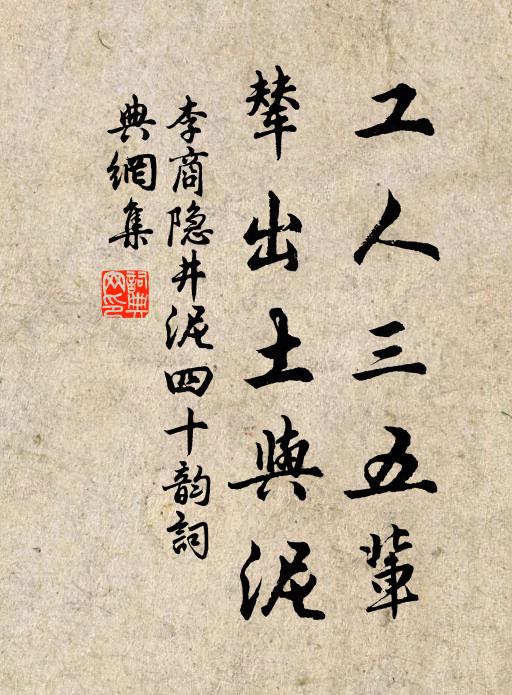 工人三五輩
輦出土與泥
李商隐井泥四十韵詞
典網集
詞典
网印